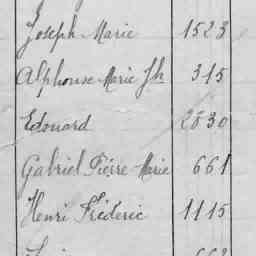 Joseph Marie 1523
Alphonse Marie Jh 315
Edouard 2830
Gabriel Pierre Marie 661
Henri Fréderic 1115